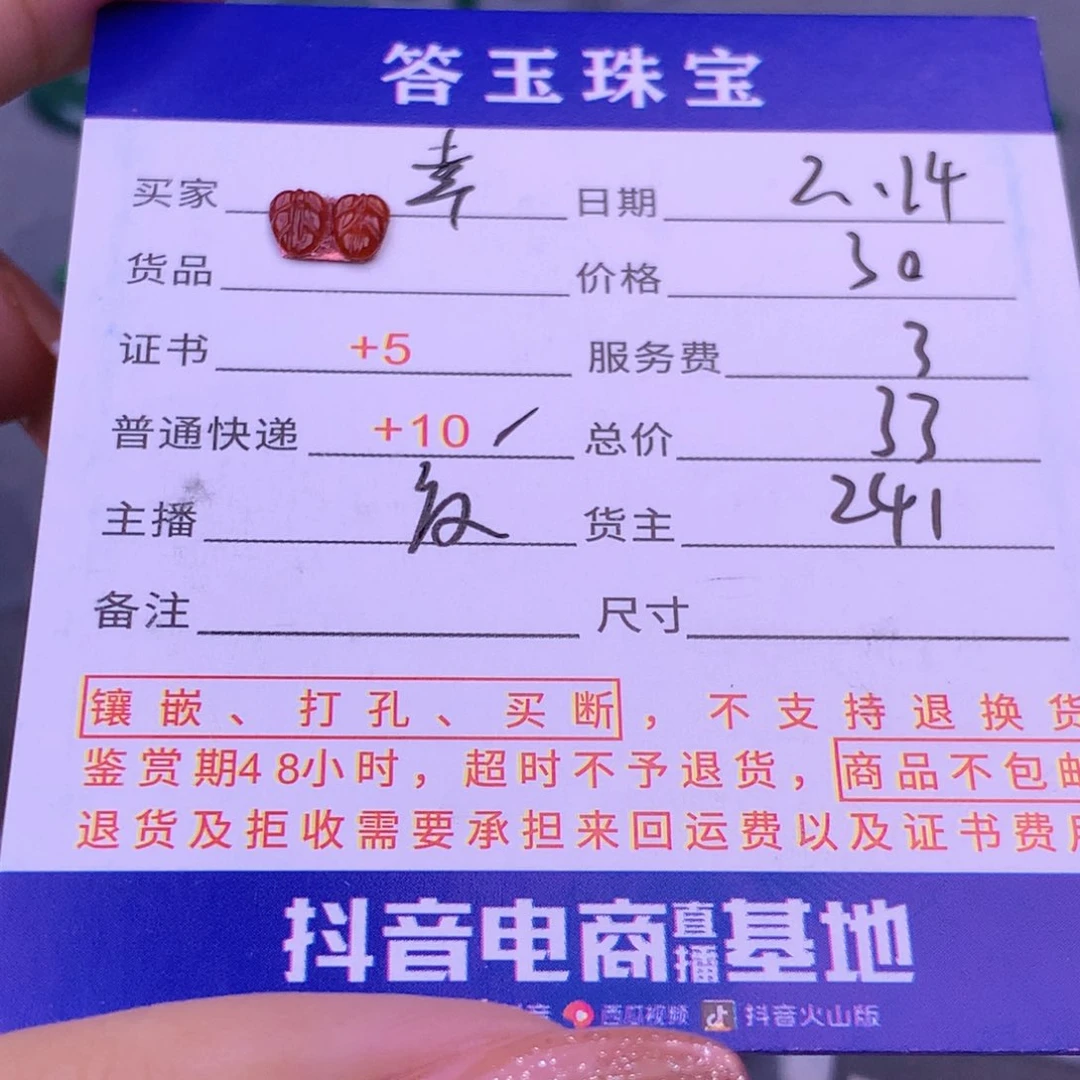 答玉珠宝
买家 幸 日期 2.14
货品 价格 30
证书 +5 服务费 3
普通快递 +10 / 总价 33
主播 货主 241
备注 尺寸
镶嵌、打孔、买断，不支持退换货
鉴赏期48小时，超时不予退货，商品不包邮
退货及拒收需要承担来回运费以及证书费用
抖音电商直播基地
抖音 西瓜视频 抖音火山版